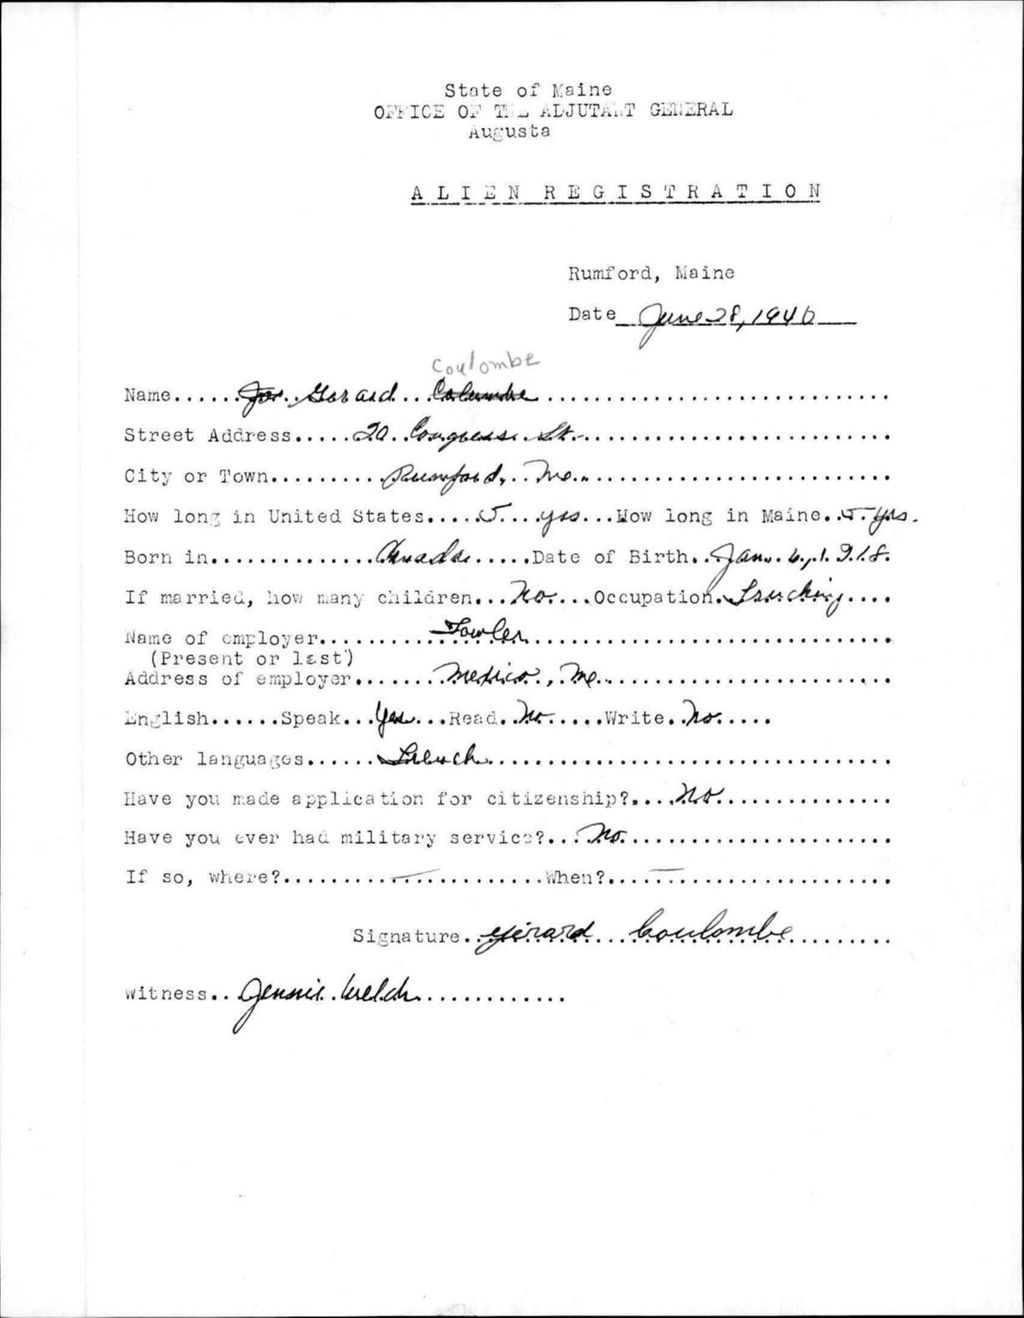 State of Maine
OFFICE OF THE ADJUTANT GENERAL
Augusta
ALIEN REGISTRATION
Rumford, Maine
Date June 28, 1940
Coulombe
Name......Joe. Gerard...Columbe
Street Address.....20. Congress. St.
City or Town..........Rumford,..Me..
How long in United States.....5....yrs...How long in Maine..5.Yrs.
Born in..............Canada.....Date of Birth..Jan. 6, 1918.
If married, how many children...No....Occupation.Trucking....
Name of employer..........Fowler
(Present or last)
Address of employer.......Mexico, Me.
English......Speak...Yes...Read..No.....Write..No.....
Other languages......French
Have you made application for citizenship?....No
Have you ever had military service?...No.
If so, where?..........—..........When?....—
Signature..Gérard...Coulombe
Witness..Jennie.Welch